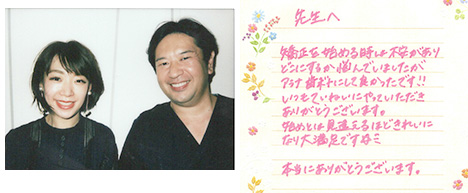 先生へ
矯正を始める時は不安があり
どこにするか悩んでいましたが
プラザ歯科にして良かったです!!
いつもていねいにやっていただき
ありがとうございます。
始めとは見違えるほどきれいに
なり大満足ですね
本当にありがとうございます。